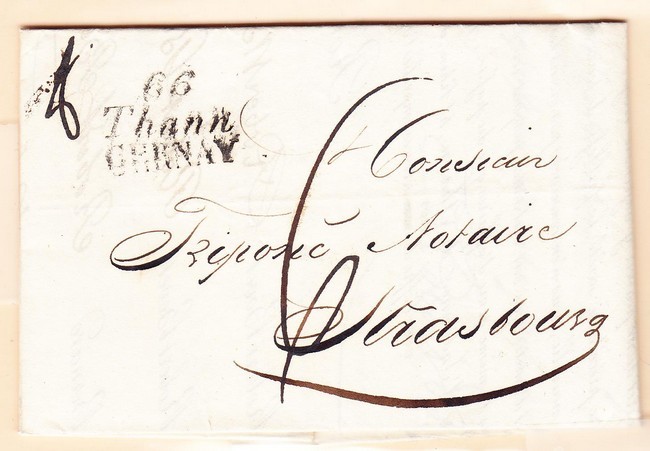 66
Thann
CERNAY
Monsieur
Triponé Notaire
Strasbourg